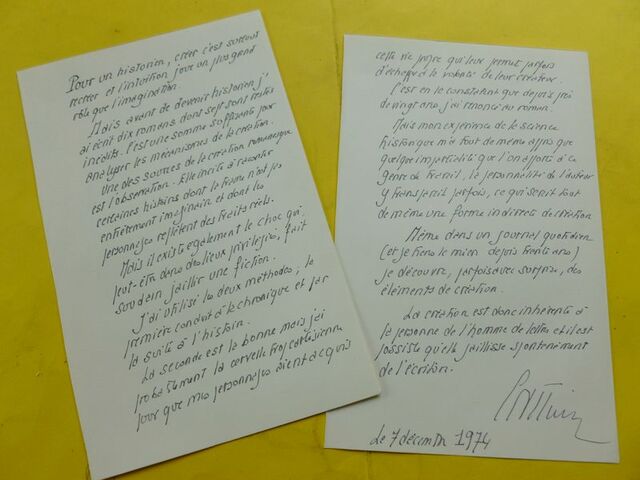 Pour un historien, créer c'est surtout
recréer et l'intuition joue un plus grand
rôle que l'imagination.
Mais avant de devenir historien j'
ai écrit dix romans dont sept sont restés
inédits. C'est une somme suffisante pour
analyser les mécanismes de la création.
Une des sources de la création romanesque
est l'observation. Elle incite à raconter
certaines histoires dont la trame n'est pas
entièrement imaginaire et dont les
personnages reflètent des traits réels.
Mais il existe également le choc qui,
peut-être dans des lieux privilégiés, fait
soudain jaillir une fiction.
J'ai utilisé les deux méthodes; la
première conduit à la chronique et par
la suite à l'histoire.
La seconde est la bonne mais j'ai
probablement la cervelle trop cartésienne
pour que mes personnages aient acquis
cette vie propre qui leur permet parfois
d'échapper à la volonté de leur créateur.
C'est en le constatant que depuis près
de vingt ans j'ai renoncé au roman.
Mais mon expérience de la science
historique m'a tout de même appris que
quelque impartialité que l'on apporte à ce
genre de travail, la personnalité de l'auteur
y transparaît parfois, ce qui serait tout
de même une forme indirecte de création
Même dans un journal quotidien
(et je tiens le mien depuis trente ans)
je découvre, parfois avec surprise, des
éléments de création.
La création est donc inhérente à
la personne de l'homme de lettres et il est
possible qu'elle jaillisse spontanément
de l'écriture.
Le 7 décembre 1974